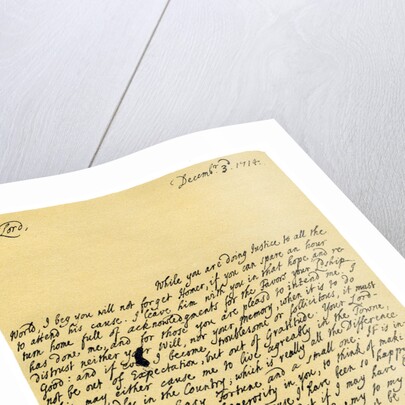 Decemb.r 3. 1714.
Lord,
While you are doing justice to all the
World, I beg you will not forget Homer, if you can spare an hour
to attend his cause. I leave him with you in that hope, and re-
turn home full of acknowledgments for the Favors your Lship
has done me, and for those you are pleasd to intend me. I
distrust neither your Will, nor your memory, when it is to do
Good: and if I become troublesome or sollicitous, it must
not be out of Expectation, but out of Gratitude. Your Lord-
may either cause me to live agreably in the Towne,
in the Country; which is really all the Difference
Easy Fortune, and a small one. It is in-
Generosity in you, to think of make
I have been so happy
if I may have
my to be